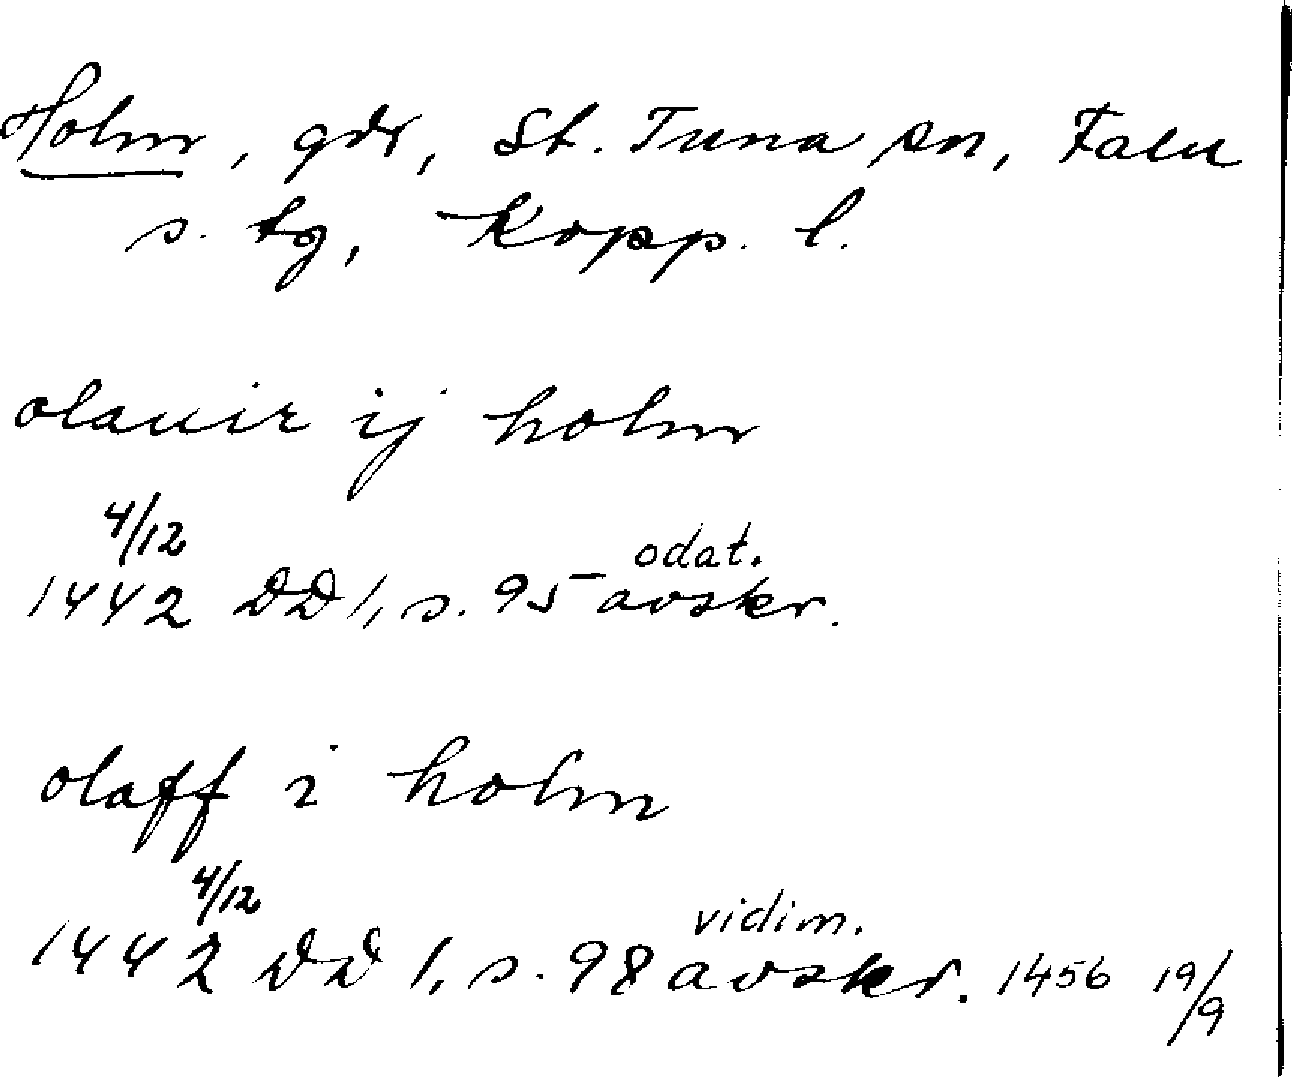 Holm, gdr, St. Tuna sn, Falu
s. tg, Kopp. l.
olauir ij holm
4/12
odat.
1442 DD 1, s. 95 avskr.
olaff i holm
4/12
vidim.
1442 DD 1, s. 98 avskr. 1456 19/9